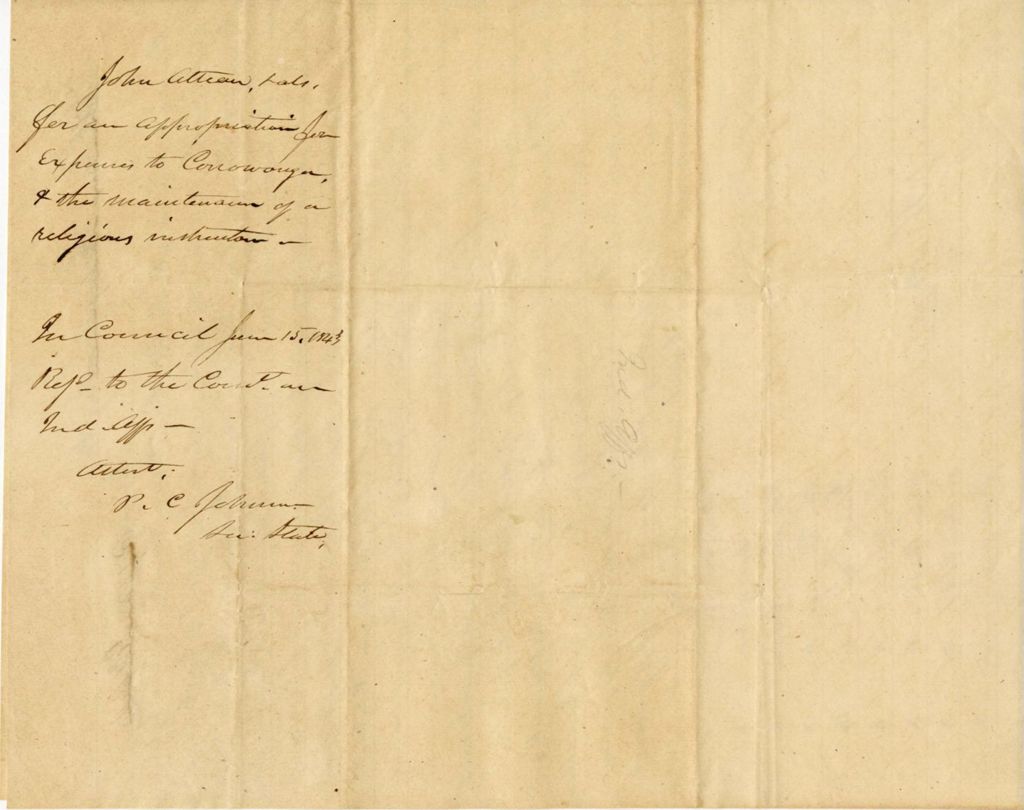 John Attean, & als.
for an appropriation for
Expenses to Conowonga,
& the maintenance of a
religious instructor –
In Council June 15, 1843
Refd– to the Comt. on
Ind. Aff –
Attest;
P. C. Johnson
Sec: State,
Ind. Aff. –